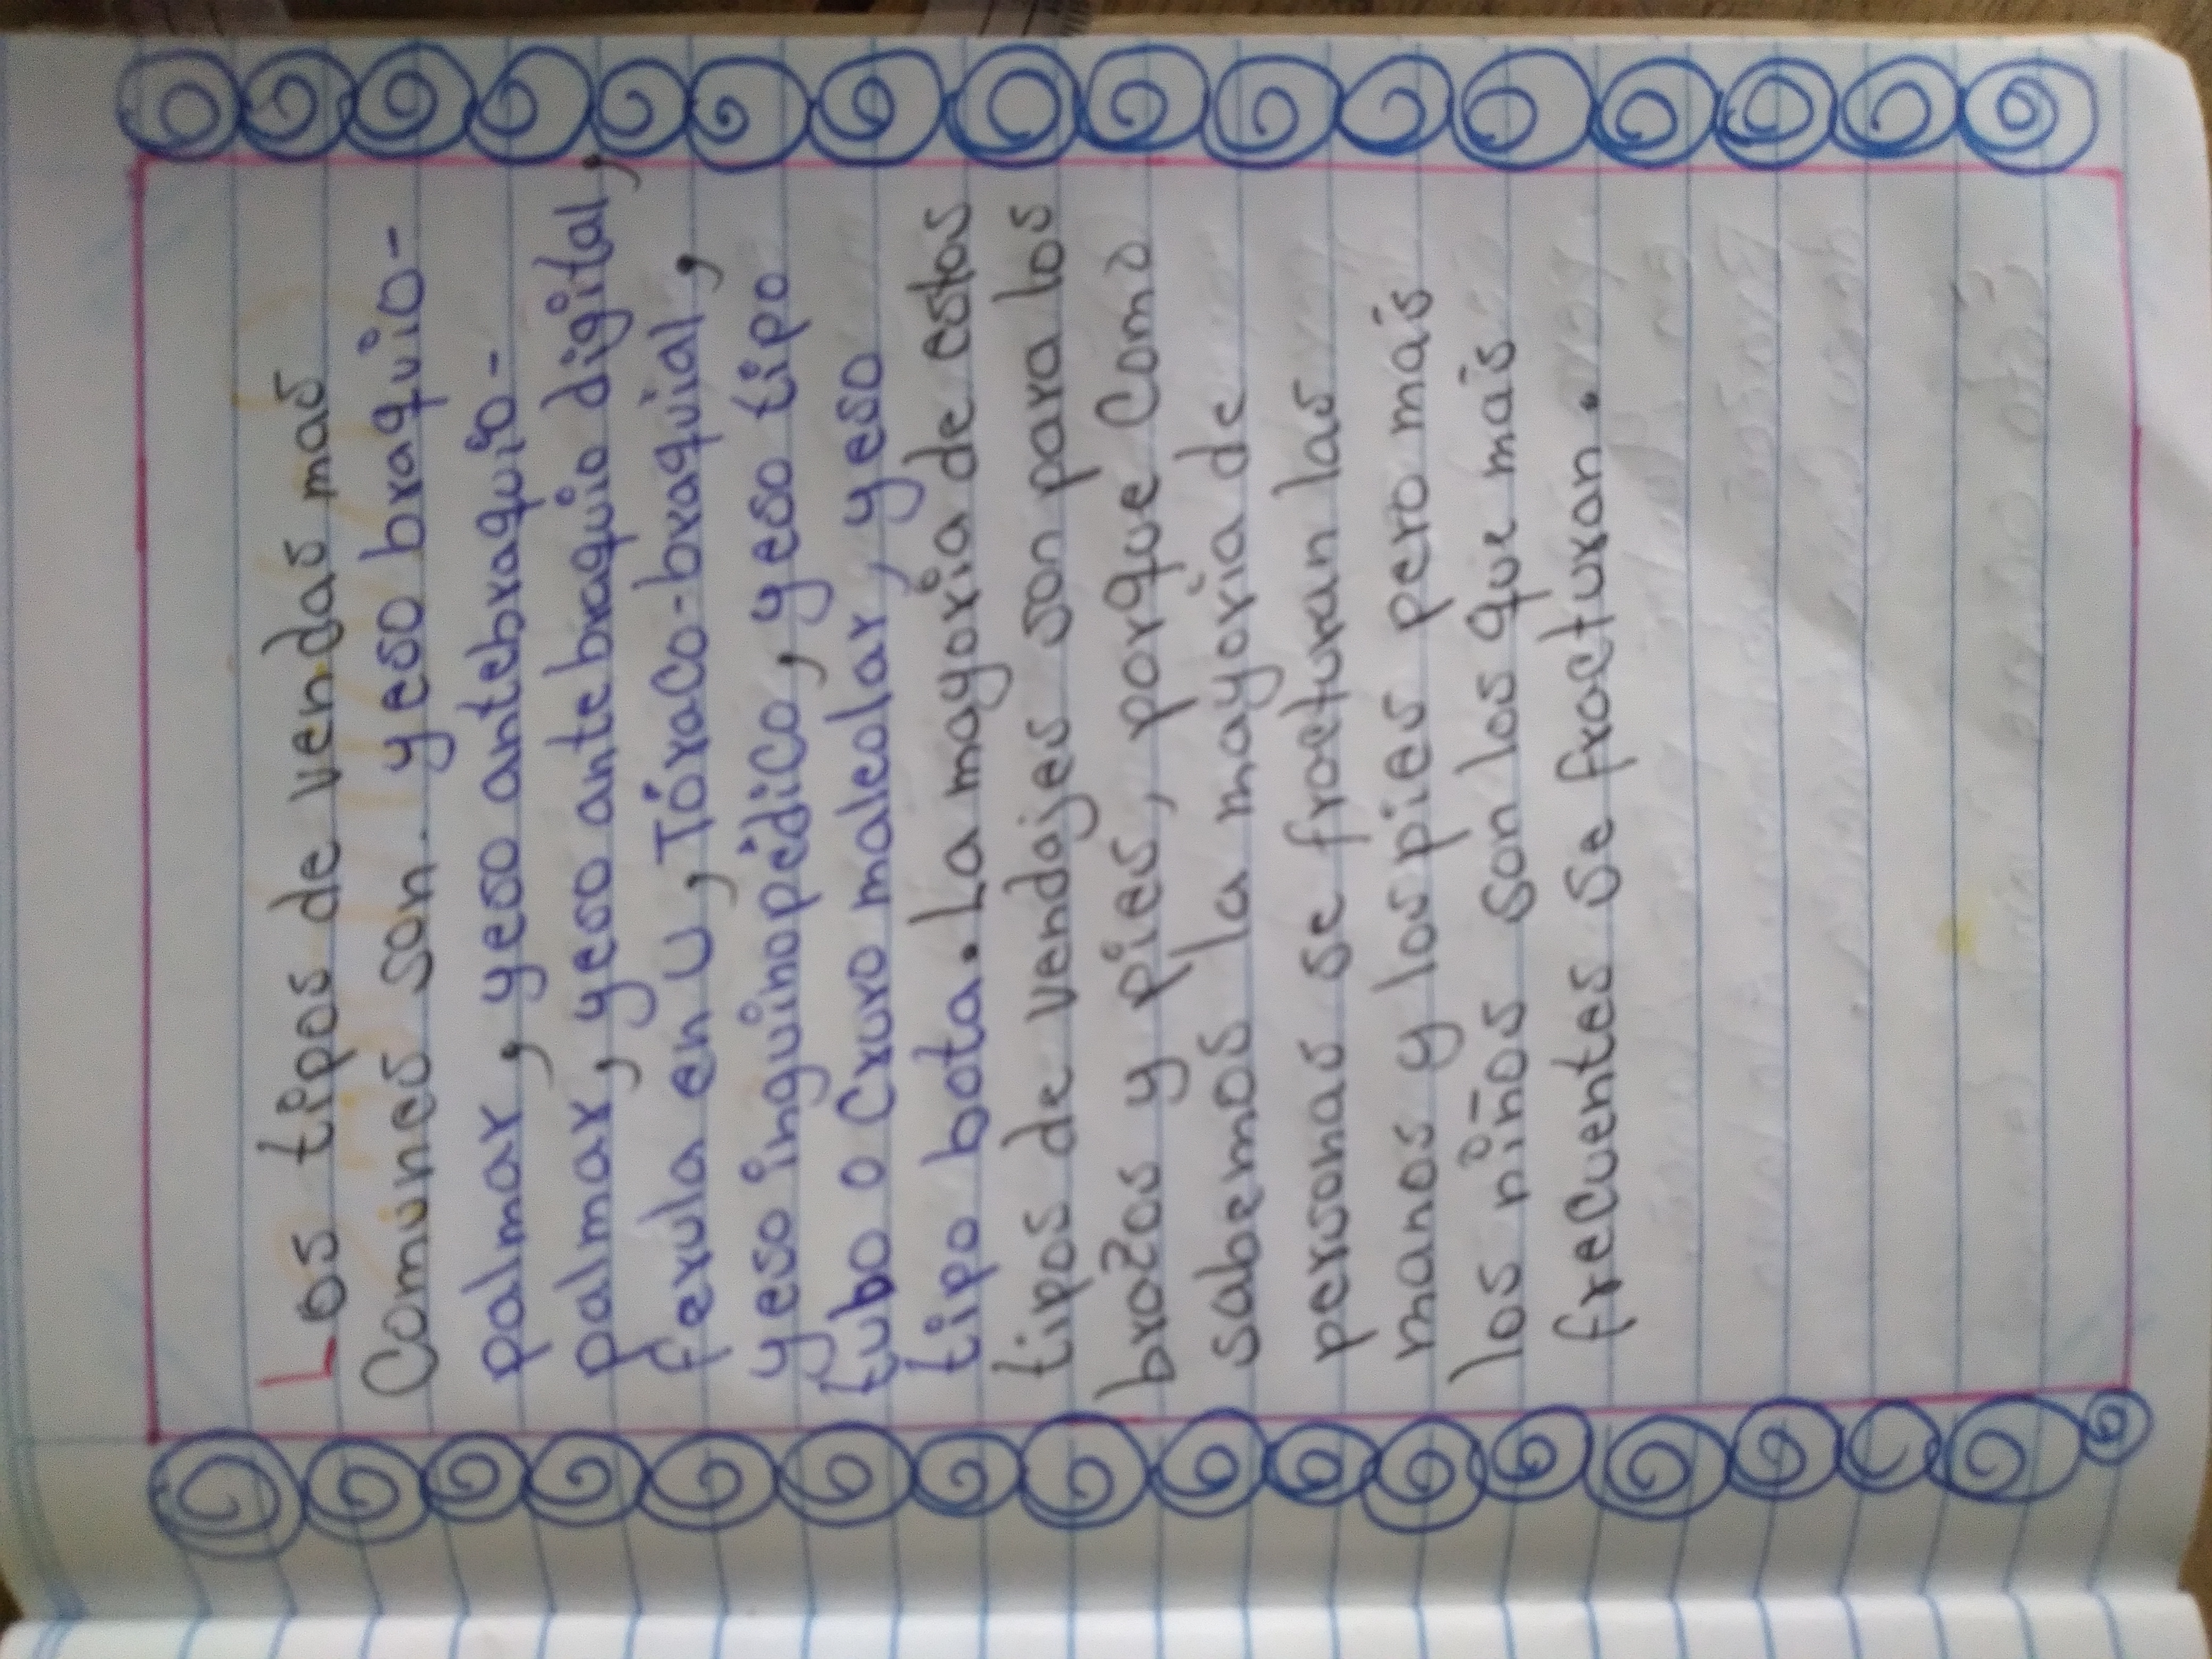 Los tipos de vendas mas
Comunes son. yeso braquio-
palmar, yeso antebraquio-
palmar, yeso ante braquio digital,
ferula en U, Tóraco-braquial,
yeso inguinopédico, yeso tipo
tubo o Cruro maleolar, yeso
tipo bota. La mayoria de estos
tipos de vendajes son para los
brazos y pies, porque Como
sabemos la mayoria de
personas se fracturan las
manos y los pies pero más
los niños son los que más
frecuentes se fracturan.